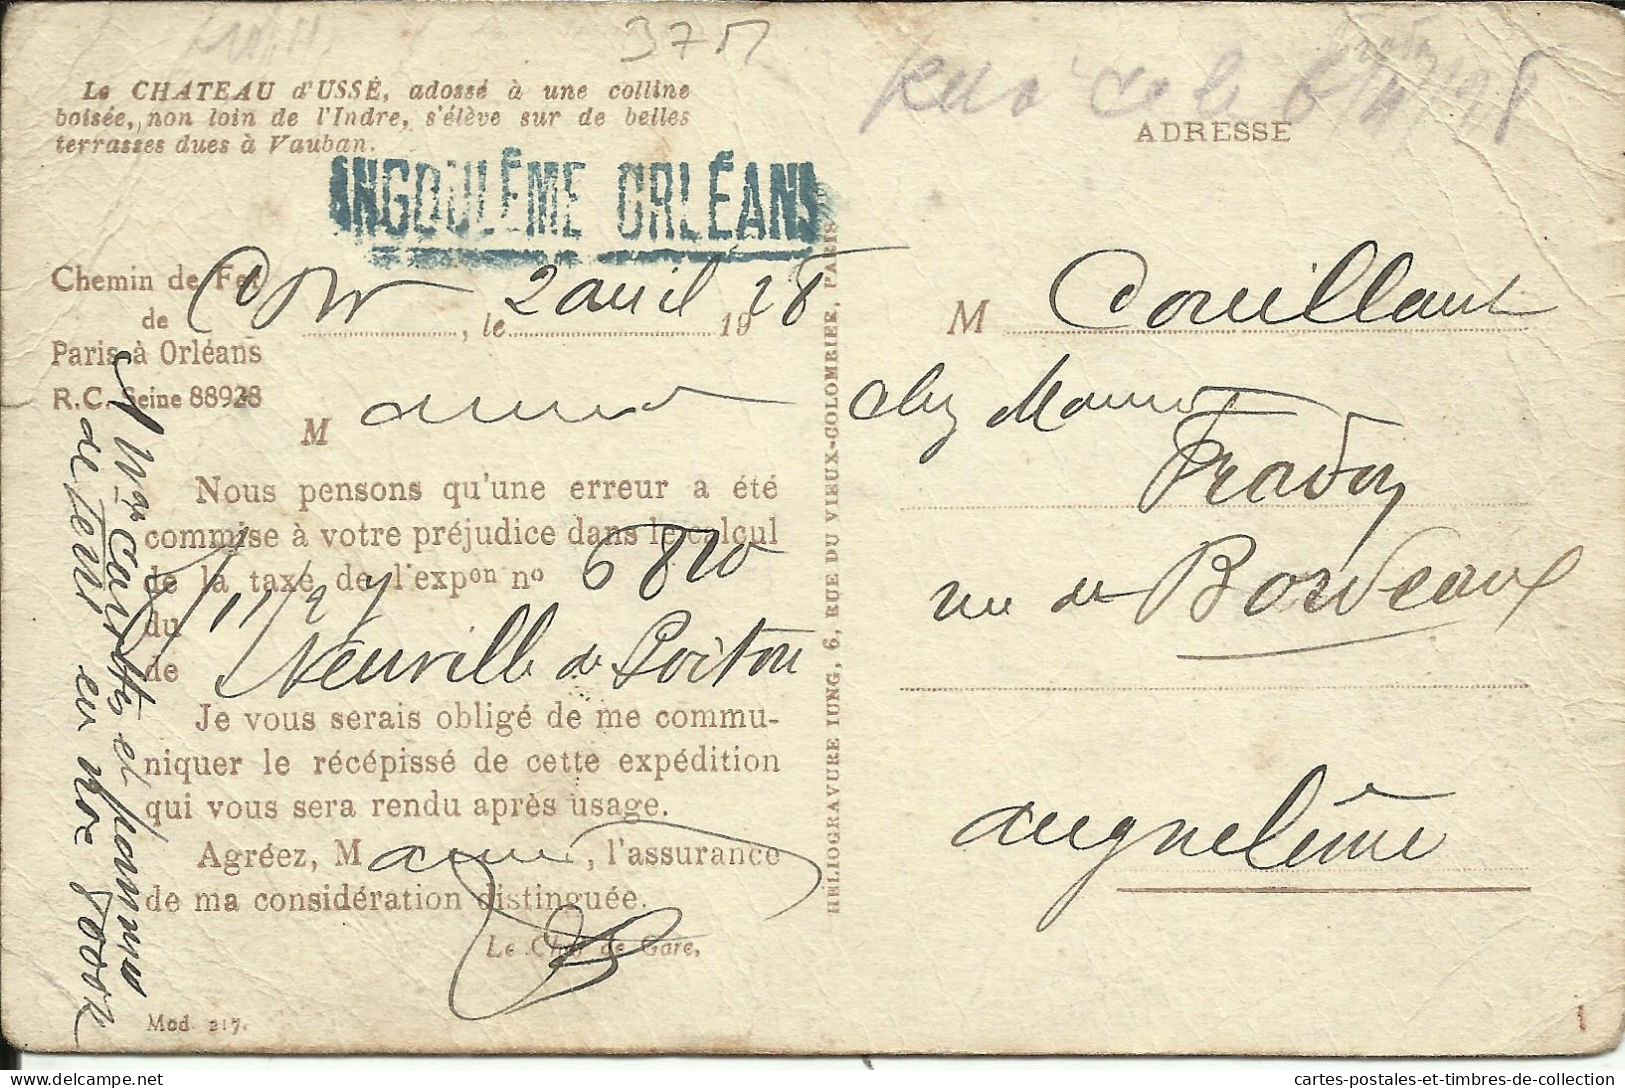 37
Le CHATEAU d'USSÉ, adossé à une colline
boisée, non loin de l'Indre, s'élève sur de belles
terrasses dues à Vauban.
ANGOULÊME ORLÉANS
Chemin de Fer
de
Paris à Orléans
R. C. Seine 88928
, le 2 avril 1928
M
Nous pensons qu'une erreur a été
commise à votre préjudice dans le calcul
de la taxe de l'expon no 6820
du /11/27
de Neuville de Poitou
Je vous serais obligé de me commu-
niquer le récépissé de cette expédition
qui vous sera rendu après usage.
Agréez, M , l'assurance
de ma considération distinguée.
Le Chef de Gare,
Mod. 217.
HELIOGRAVURE IUNG, 6, RUE DU VIEUX-COLOMBIER, PARIS
le 6/4/28
ADRESSE
M Couillaud
chez
rue de Bordeaux
angoulême
1
cartes-postales-et-timbres-de-collection